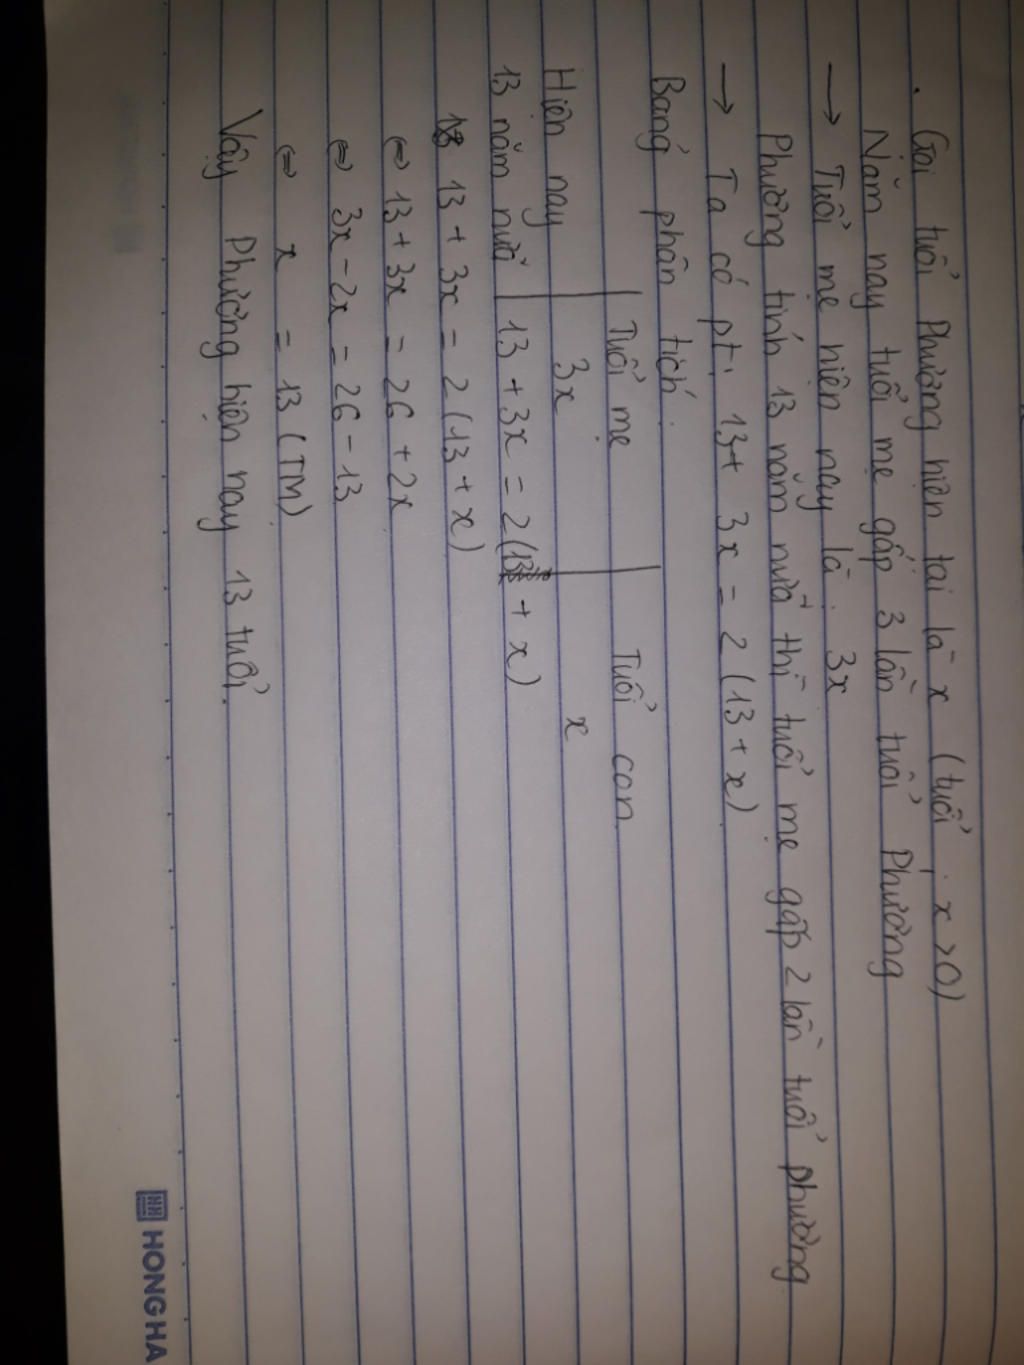 . Gọi tuổi Phương hiện tại là x (tuổi; x>0)
Năm nay tuổi mẹ gấp 3 lần tuổi Phương
→ Tuổi mẹ hiện nay là: 3x
Phương tính 13 năm nữa thì tuổi mẹ gấp 2 lần tuổi phương
→ Ta có pt: 13+ 3x = 2 (13 + x)
Bảng phân tích
Tuổi mẹ Tuổi con
Hiện nay 3x x
13 năm nữa 13 + 3x = 2(13 + x)
13 + 3x = 2 (13 + x)
⇔ 13 + 3x = 26 + 2x
⇔ 3x - 2x = 26 - 13
⇔ x = 13 (TM)
Vậy Phương hiện nay 13 tuổi.
HONG HA